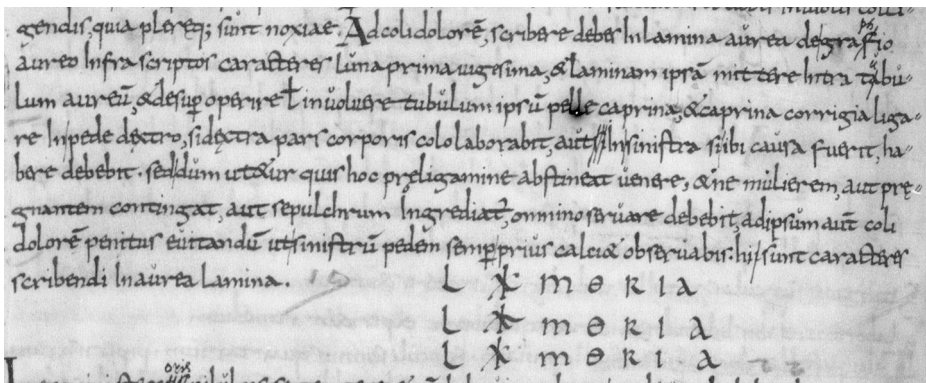 gendis, quia plereq; sunt noxiae. Ad coli dolorē, scribere debes In lamina aurea de grafio
aureo Infra scriptos caracteres luna prima uigesima, & laminam ipsā mittere Intra tubu-
lum aureū, & desup operire ł inuoluere tubulum ipsū pelle caprina, & caprina corrigia liga-
re In pede dextro, si dextra pars corporis colo laborabit, aut In sinistra si ibi causa fuerit, ha-
bere debebit. sed dum utetur quis hoc preligamine abstineat uenere, & ne mulierem, aut prę-
gnantem contingat, aut sepulchrum Ingrediat̄, omnino seruare debebit, ad ipsum aut̄ coli
dolorē penitus euitandū ut sinistrū pedem semp prius calci& obseruabis. hi sunt caracteres
scribendi In aurea lamina.
L X M Θ R I A
L X M Θ R I A
L X M Θ R I A